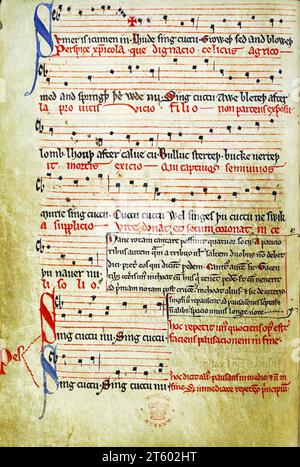 Sumer is icumen in. Lhude sing cuccu. Groweþ sed and bloweþ
Perspice xpicola que dignacio celicus agrico
med and springþ þe wde nu. Sing cuccu Awe bleteþ after
la pro uitis vicio filio non parcens exposu
lomb lhouþ after calue cu Bulluc sterteþ. bucke uerteþ
it mortis exicio Qui captiuos semiuiuos
murie sing cuccu Cuccu cuccu Wel singes þu cuccu ne swik
a supplicio Vite donat et secum coronat in ce
þu nauer nu.
li so lio
Hanc rotam cantare possunt quatuor socii. A paucio
ribus autem quam a tribus uel saltem duobus non debet
dici preter eos qui dicunt pedem. Canitur autem sic. Tacen
tibus ceteris unus inchoat cum hiis qui tenent pedem. Et cum uenerit
ad primam notam post crucem inchoat alius. et sic de ceteris
singuli uero repausent ad pausaciones scriptas
et non alibi spacio unius longe note.
Sing cuccu nu. Sing cuccu.
hoc repetit unus quociens opus est
faciens pausacionem in fine.
Pes
Sing cuccu. Sing cuccu nu
hoc dicit alius pausans in medio et non in
fine. Sed immediate repetens principium.
alamy